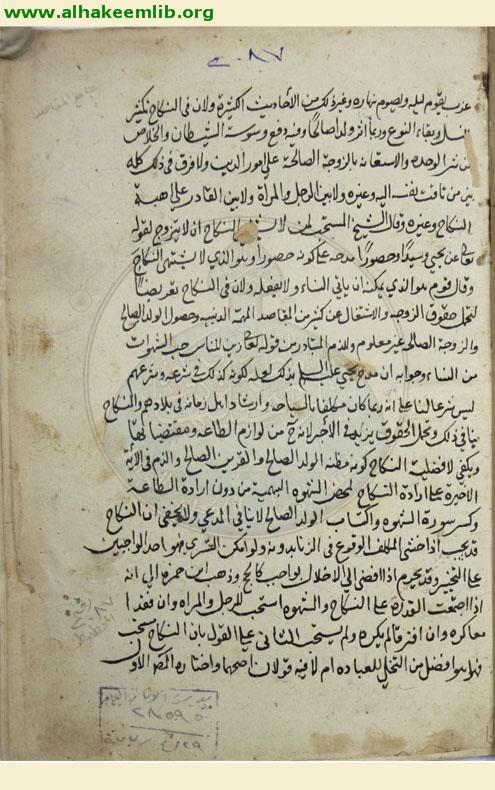 www.alhakeemlib.org
٢٠٨٧
عذب يقوم ليله ويصوم نهاره وغير ذلك من الأحاديث الكثيرة ولان في النكاح تكثير
النسل وبقاء النوع وربما اثر ولدا صالحا وفيه دفع وسوسة الشيطان والخلاص
من شر الوحده والاستعانه بالزوجة الصالحة على امور الدين ولا فرق في ذلك كله
بين من تاقت نفسه اليه وغيره ولا بين الرجل والمرأة ولا بين القادر على اهبة
النكاح وغيره وقال الشيخ المستحب لمن لا يشتهي النكاح ان لا يتزوج لقوله
تعالى عن يحيى وسيدا وحصورا مدحه على كونه حصورا وهو الذي لا يشتهي النكاح
وقال قوم هو الذي يمكنه ان ياتي النساء ولا يفعله ولان في النكاح تعريضا
لتحمل حقوق الزوجه والاشتغال عن كثير من المقاصد المهمة الدينيه وحصول الولد الصالح
والزوجة الصالحه غير معلوم وللذم المتبادر من قوله تعالى زين للناس حب الشهوات
من النساء وجوابه ان مدح يحيى عليه السلم بذلك لعله لكونه كذلك في شرعه وشرعهم
ليس شرعا لنا على انه ربما كان مكلفا بالسياحه وارشاد اهل زمانه في بلادهم والنكاح
ينافي ذلك وتحمل الحقوق يزيد في الاجر لانه ح من لوازم الطاعه ومقتضياتها
ويكفي لافضلية النكاح كونه مظنه الولد الصالح والقرين الصالح والذم في الآية
الاخيرة على ارادة النكاح لمحض الشهوه البهيمية من دون ارادة الطاعة
وكسر سورة الشهوه واكتساب الولد الصالح لا ينافي المدعى ولا يخفى ان النكاح
قد يجب اذا خشي المكلف الوقوع في الزنا بدونه ولو امكن التسري فهو احد الواجبين
على التخيير وقد يحرم اذا افضى الى الاخلال بواجب كالحج وذهب ابن حمزه الى انه
اذا اجتمعت القدرة على النكاح والشهوه استحب للرجل والمراه وان فقدا
معا كره وان افترقا لم يكره ولم يستحب الثاني على القول بان النكاح مستحب
فهل هو افضل من التخلي للعباده ام لا فيه قولان اصحهما واختاره المص الاول
جامع المقاصد